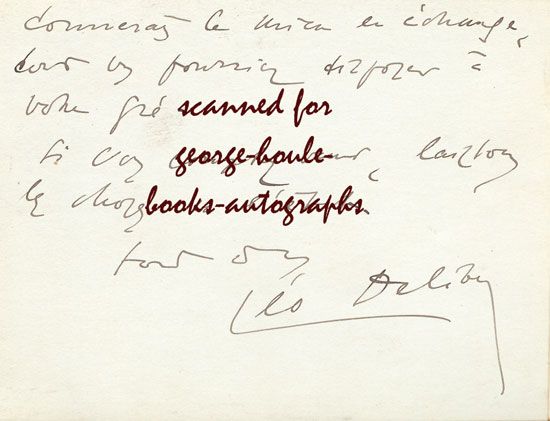 le mien en échange,
vous pourriez disposer à
votre gré scanned for
Si vous george-houle- laissons
les choses books-autographs
tout à vous
Léo Delibes